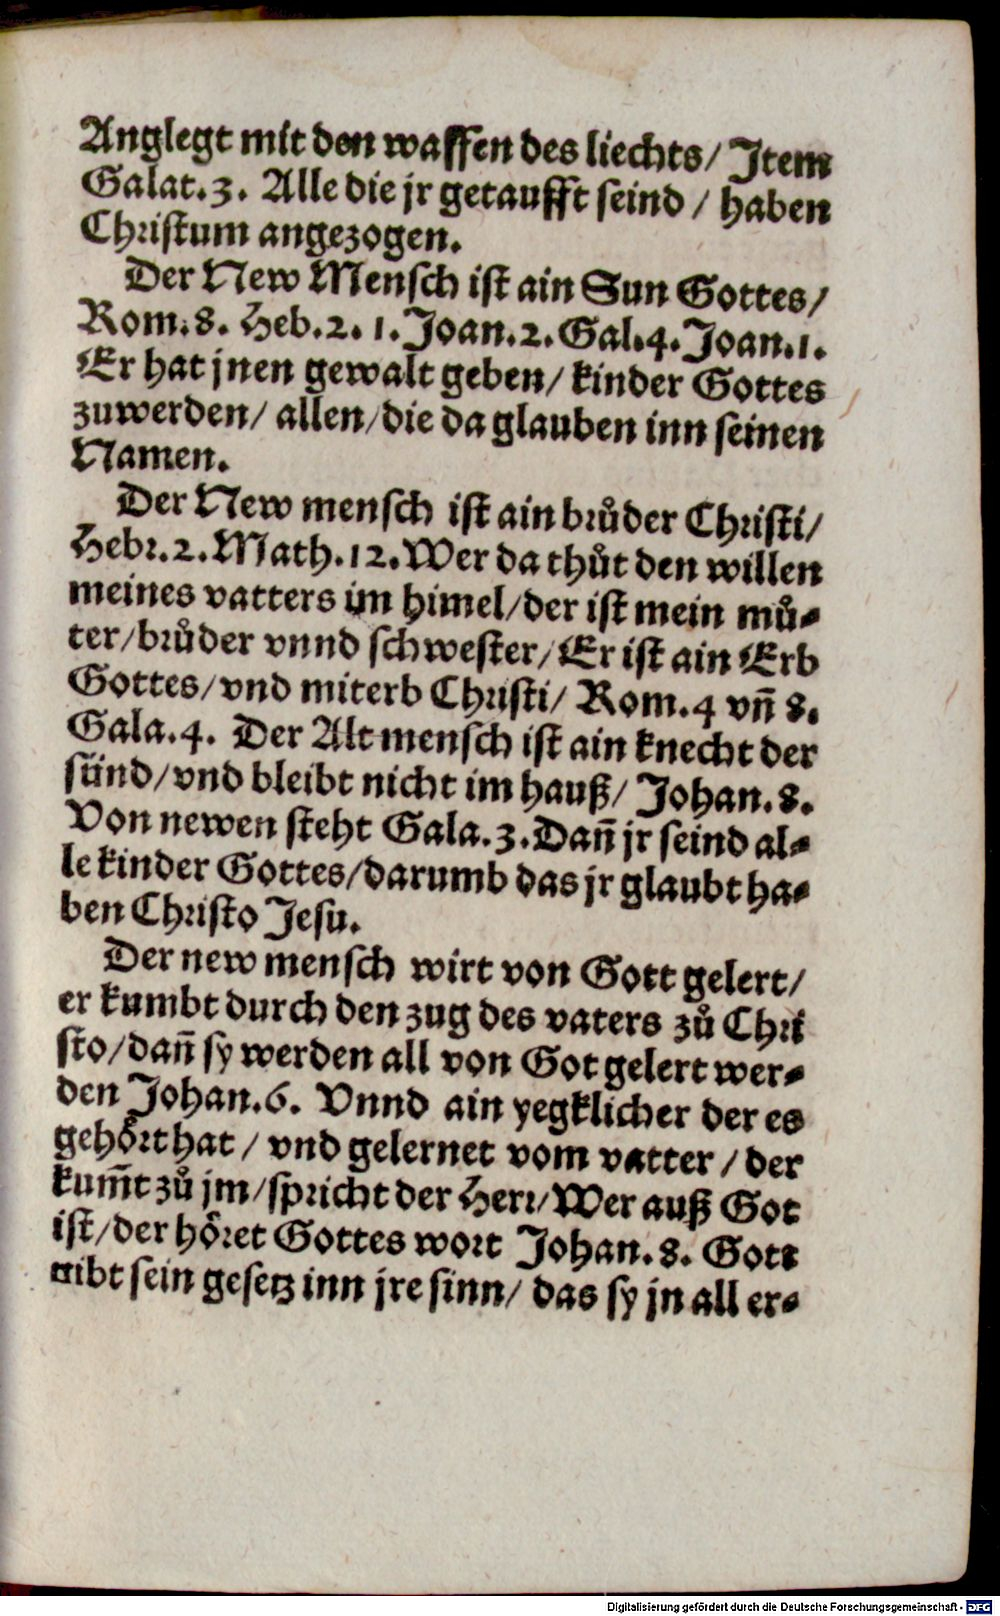 Anglegt mit den waffen des liechts/ Item
Galat.3. Alle die jr getaufft seind / haben
Christum angezogen.
Der New Mensch ist ain Sun Gottes/
Rom.8. Heb.2. 1. Joan.2. Gal.4. Joan.1.
Er hat jnen gewalt geben/ kinder Gottes
zuwerden/ allen/die da glauben inn seinen
Namen.
Der New mensch ist ain bruͦder Christi/
Hebr.2. Math.12. Wer da thuͦt den willen
meines vatters im himel/der ist mein muͦ-
ter/bruͦder vnnd schwester/Er ist ain Erb
Gottes/vnd miterb Christi/ Rom.4 vn̄ 8.
Gala.4. Der Alt mensch ist ain knecht der
sünd/vnd bleibt nicht im hauß/ Johan.8.
Von newen steht Gala.3. Dan̄ jr seind al-
le kinder Gottes/darumb das jr glaubt ha-
ben Christo Jesu.
Der new mensch wirt von Gott gelert/
er kumbt durch den zug des vaters zuͦ Chri
sto/dan̄ sy werden all von Got gelert wer-
den Johan.6. Vnnd ain yegklicher der es
gehoͤrt hat / vnd gelernet vom vatter / der
kum̄t zuͦ jm/spricht der Herr/Wer auß Got
ist/der hoͤret Gottes wort Johan.8. Gott
gibt sein gesetz inn jre sinn/ das sy jn all er-
Digitalisierung gefördert durch die Deutsche Forschungsgemeinschaft - DFG